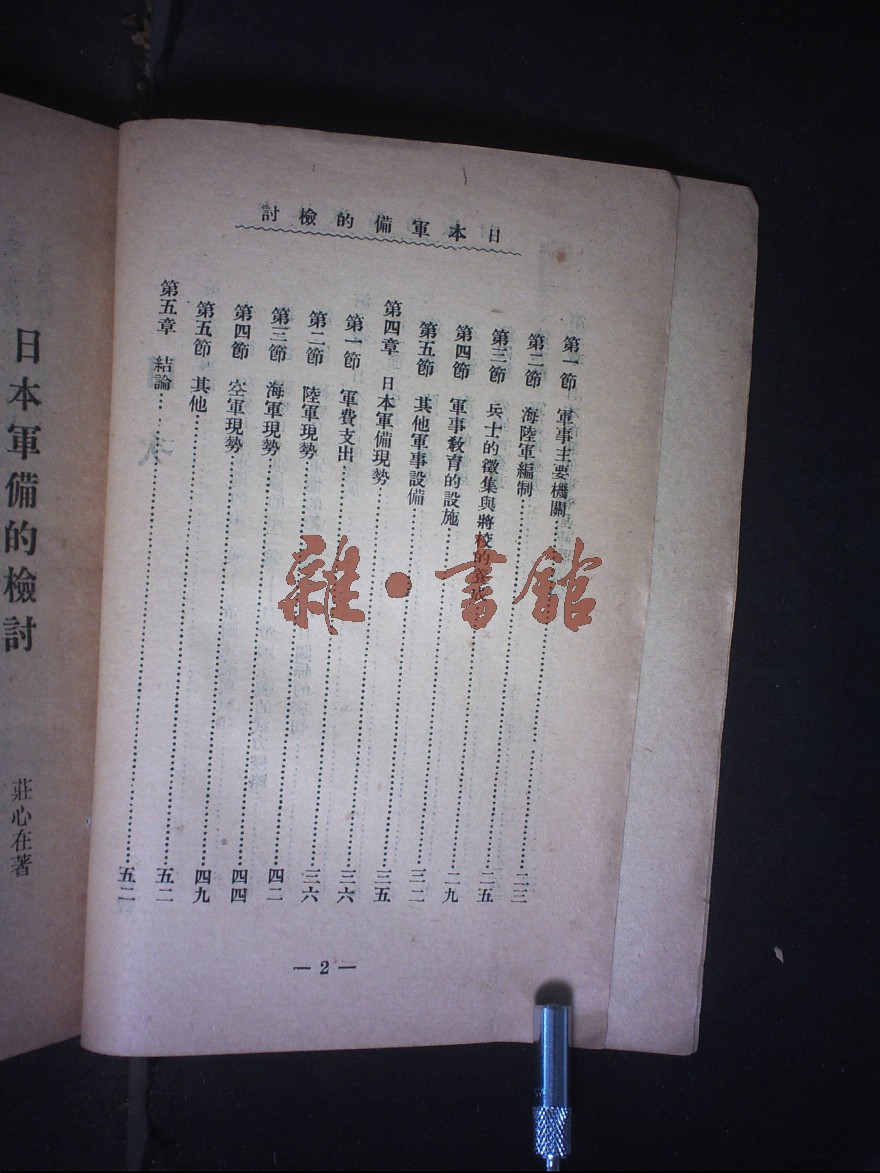 日本軍備的檢討
第一節 軍事主要機關……二三
第二節 海陸軍編制……二五
第三節 兵士的徵集與將校的……二九
第四節 軍事教育的設施……三二
第五節 其他軍事設備……三五
第四章 日本軍備現勢……三六
第一節 軍費支出……三六
第二節 陸軍現勢……四二
第三節 海軍現勢……四四
第四節 空軍現勢……四九
第五節 其他……五二
第五章 結論……五二
— 2 —
日本軍備的檢討
莊心在著
雜·書館